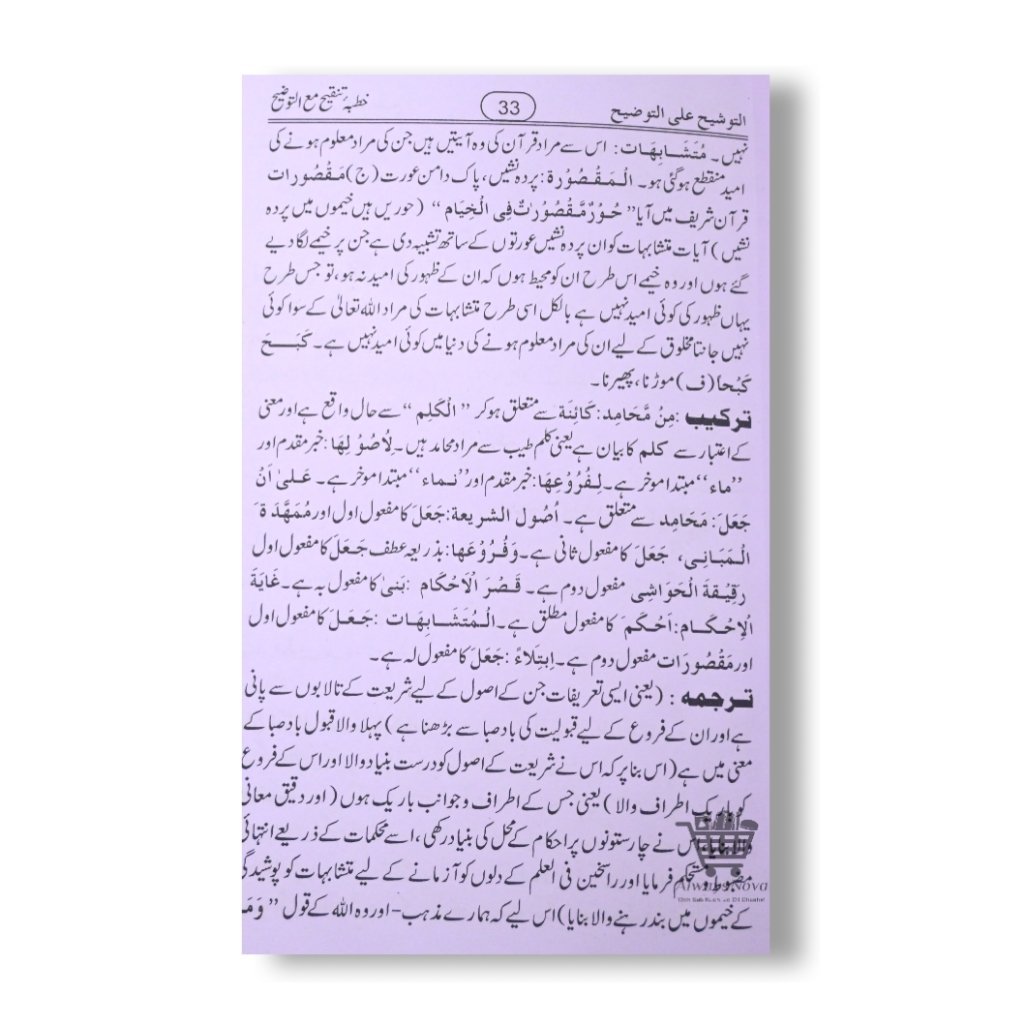 التوشیح علی التوضیح 33 خطبۂ تنقیح مع التوضیح
نہیں۔ مُتَشَابِهَات: اس سے مراد قرآن کی وہ آیتیں ہیں جن کی مراد معلوم ہونے کی
امید منقطع ہوگئی ہو۔ الْمَقْصُوْرَة: پردہ نشیں، پاک دامن عورت (ج) مَقْصُوْرَات
قرآن شریف میں آیا ”حُوْرٌ مَّقْصُوْرٰتٌ فِی الْخِیَام“ (حوریں ہیں خیموں میں پردہ
نشیں) آیات متشابہات کو ان پردہ نشیں عورتوں کے ساتھ تشبیہ دی ہے جن پر خیمے لگا دیے
گئے ہوں اور وہ خیمے اس طرح ان کو محیط ہوں کہ ان کے ظہور کی امید نہ ہو، تو جس طرح
یہاں ظہور کی کوئی امید نہیں ہے بالکل اسی طرح متشابہات کی مراد اللہ تعالیٰ کے سوا کوئی
نہیں جانتا مخلوق کے لیے ان کی مراد معلوم ہونے کی دنیا میں کوئی امید نہیں ہے۔ کَبَحَ
کَبْحا (ف) موڑنا، پھیرنا۔
ترکیب: مِنْ مَّحَامِد: کَائِنَة سے متعلق ہو کر ”الْکَلِم“ سے حال واقع ہے اور معنی
کے اعتبار سے کلم کا بیان ہے یعنی کلم طیب سے مراد محامد ہیں۔ لِأُصُوْلِهَا: خبر مقدم اور
”ماء“ مبتدا موخر ہے۔ لِفُرُوْعِهَا: خبر مقدم اور ”نماء“ مبتدا موخر ہے۔ عَلیٰ اَنْ
جَعَلَ: مَحَامِد سے متعلق ہے۔ اُصُوْل الشریعة: جَعَلَ کا مفعول اول اور مُمَهَّدَةَ
الْمَبَانِی، جَعَلَ کا مفعول ثانی ہے۔ وَفُرُوْعَها: بذریعہ عطف جَعَلَ کا مفعول اول
رَقِیْقَةَ الْحَوَاشِی مفعول دوم ہے۔ قَصْرَ الْاَحْکَام: بَنیٰ کا مفعول بہ ہے۔ غَایَةَ
الْاِحْکَام: اَحْکَمَ کا مفعول مطلق ہے۔ الْمُتَشَابِهَات: جَعَلَ کا مفعول اول
اور مَقْصُوْرَات مفعول دوم ہے۔ اِبْتِلَاءً: جَعَلَ کا مفعول لہ ہے۔
ترجمہ: (یعنی ایسی تعریفات جن کے اصول کے لیے شریعت کے تالابوں سے پانی
ہے اور ان کے فروع کے لیے قبولیت کی باد صبا سے بڑھنا ہے) پہلا والا قبول باد صبا کے
معنی میں ہے (اس بنا پر کہ اس نے شریعت کے اصول کو درست بنیاد والا اور اس کے فروع
کو باریک اطراف والا) یعنی جس کے اطراف و جوانب باریک ہوں (اور دقیق معانی
والا بنایا، اس نے چار ستونوں پر احکام کے محل کی بنیاد رکھی، اسے محکمات کے ذریعے انتہائی
مضبوط و مستحکم فرمایا اور راسخین فی العلم کے دلوں کو آزمانے کے لیے متشابہات کو پوشیدگی
کے خیموں میں بند رہنے والا بنایا) اس لیے کہ ہمارے مذہب- اور وہ اللہ کے قول ”وَمَـ
Always Nova